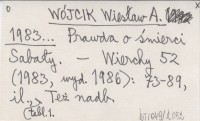 WÓJCIK Wiesław A.
1983... Prawda o śmierci
Sabały. — Wierchy 52
(1983, wyd. 1986): 73-89,
il., Też nadb.
tabl. 1.